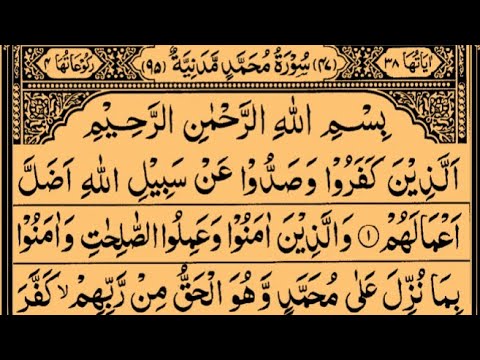 اٰيَاتُهَا ٣٨ (٤٧) سُوْرَةُ مُحَمَّدٍ مَّدَنِيَّةٌ (٩٥) رُكُوْعَاتُهَا ٤
بِسْمِ اللهِ الرَّحْمٰنِ الرَّحِيْمِ
اَلَّذِيْنَ كَفَرُوْا وَصَدُّوْا عَنْ سَبِيْلِ اللهِ اَضَلَّ
اَعْمَالَهُمْ ۝١ وَالَّذِيْنَ اٰمَنُوْا وَعَمِلُوا الصّٰلِحٰتِ وَاٰمَنُوْا
بِمَا نُزِّلَ عَلٰى مُحَمَّدٍ وَّهُوَ الْحَقُّ مِنْ رَّبِّهِمْ ۙ كَفَّرَ